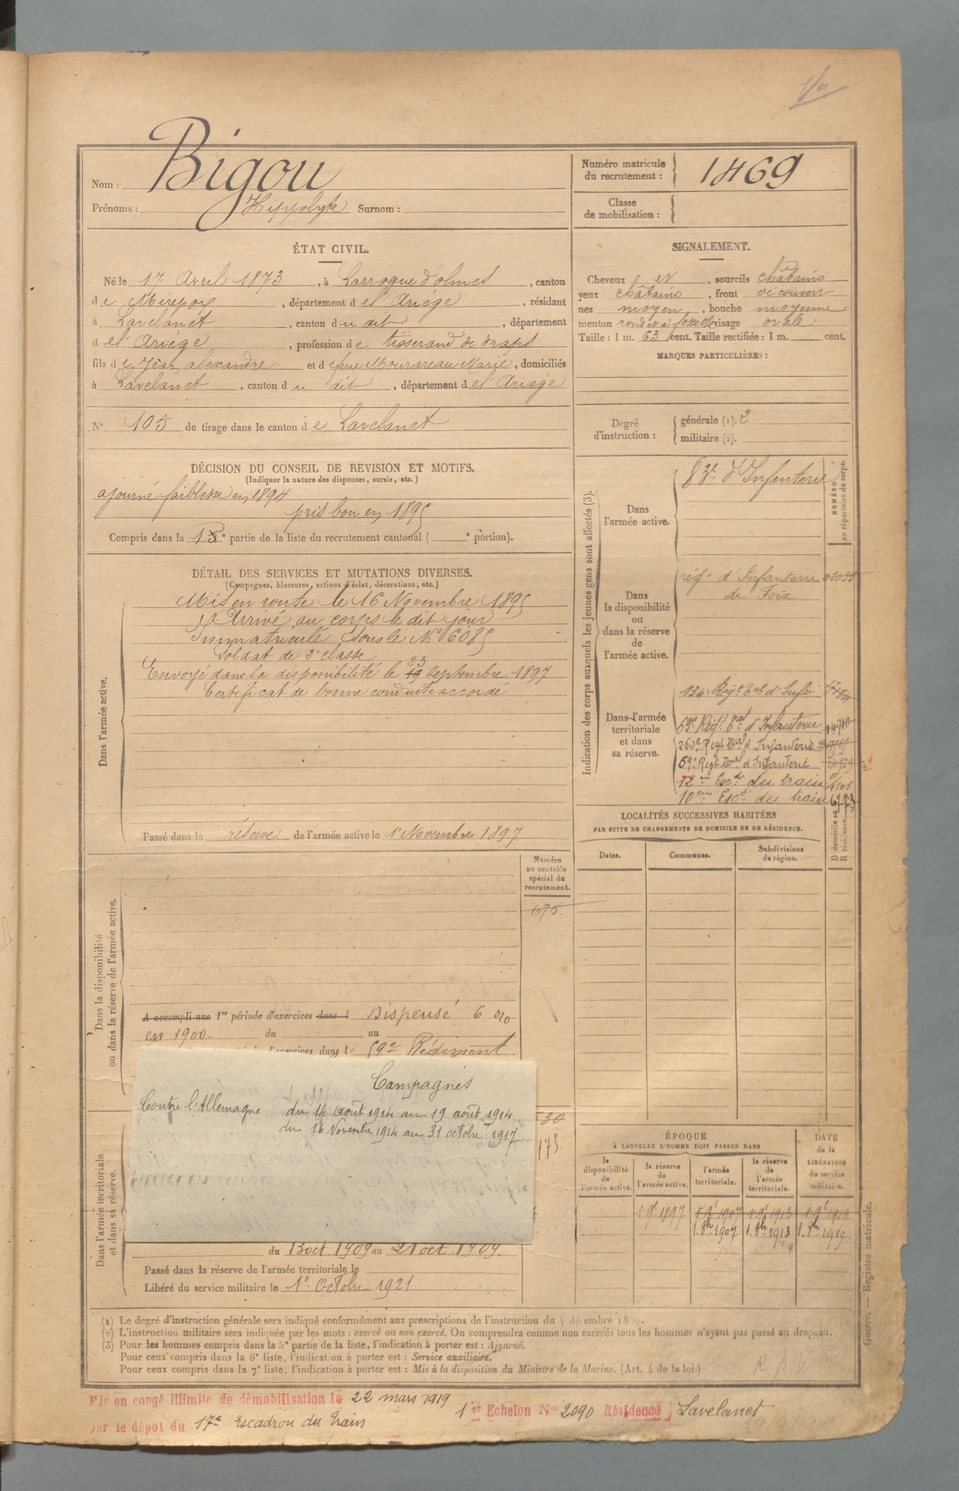 Nom : Bigou
Prénoms : Hippolyte Surnom :
Numéro matricule du recrutement : 1469
Classe de mobilisation :
ÉTAT CIVIL.
Né le 17 Avril 1873, à Larroque d'olmes, canton
de Mirepoix, département de l'Ariège, résidant
à Lavelanet, canton du dit, département
de l'Ariège, profession de tisserand de draps
fils de Jean alexandre et de, domiciliés
à Lavelanet, canton du dit, département de l'Ariège
N° 105 de tirage dans le canton de Lavelanet
SIGNALEMENT.
Cheveux et, sourcils châtains
yeux châtains, front découvert
nez moyen, bouche moyenne
menton rond à fossette visage ovale
Taille : 1 m. 63 cent. Taille rectifiée : 1 m. cent.
MARQUES PARTICULIÈRES :
Degré d'instruction : générale (1). 2
militaire (2).
DÉCISION DU CONSEIL DE REVISION ET MOTIFS.
(Indiquer la nature des dispenses, sursis, etc.)
ajourné faiblesse en 1894
pris bon en 1895
Compris dans la e partie de la liste du recrutement cantonal ( e portion).
DÉTAIL DES SERVICES ET MUTATIONS DIVERSES.
(Campagnes, blessures, actions d'éclat, décorations, etc.)
Dans l'armée active.
Mis en route le 16 Novembre 1895
Arrivé au corps le dit jour
Immatriculé sous le N° 6085
Soldat de 2e classe
Envoyé dans la disponibilité le 23 septembre 1897
Certificat de bonne conduite accordé
Passé dans la réserve de l'armée active le 1 Novembre 1897
Indication des corps auxquels les jeunes gens sont affectés (3).
NUMÉRO au répertoire du corps.
Dans l'armée active.
d'Infanterie
Dans la disponibilité ou dans la réserve de l'armée active.
régt d'Infanterie
de Foix
Dans l'armée territoriale et dans sa réserve.
136 Régt Ter d'Infie
d'Infanterie
Régt Terl d'Infanterie
Régt Terl d'Infanterie
Escon du train
Escon du train
LOCALITÉS SUCCESSIVES HABITÉES
PAR SUITE DE CHANGEMENTS DE DOMICILE OU DE RÉSIDENCE.
Dates. Communes. Subdivisions de région. D domicile ou R résidence.
Numéro au contrôle spécial du recrutement.
675
Dans la disponibilité ou dans la réserve de l'armée active.
A accompli une 1re période d'exercices dans l Dispensé
en 1900 du au
59e Régiment
Campagnes
Contre l'Allemagne du 14 août 1914 au 19 août 1914
du 16 Novembre 1914 au 31 octobre 1917
Dans l'armée territoriale et dans sa réserve.
du 13 oct 1909 au 21 oct 1909
Passé dans la réserve de l'armée territoriale le
Libéré du service militaire le 1er Octobre 1921
ÉPOQUE
À LAQUELLE L'HOMME DOIT PASSER DANS
DATE de la LIBÉRATION du service militaire.
la disponibilité de l'armée active. la réserve de l'armée active. l'armée territoriale. la réserve de l'armée territoriale.
1 9bre 1897 1 9bre 1907 1 9bre 1913 1 9bre 1919
1. 8bre 1907 1. 8bre 1913 1. 8bre 1919
(1) Le degré d'instruction générale sera indiqué conformément aux prescriptions de l'instruction du 4 décembre 1889.
(2) L'instruction militaire sera indiquée par les mots : exercé ou non exercé. On comprendra comme non exercés tous les hommes n'ayant pas passé au drapeau.
(3) Pour les hommes compris dans la 5e partie de la liste, l'indication à porter est : Ajourné.
Pour ceux compris dans la 6e liste, l'indication à porter est : Service auxiliaire.
Pour ceux compris dans la 7e liste, l'indication à porter est : Mis à la disposition du Ministre de la Marine. (Art. 4 de la loi.)
Registre matricule.
Mis en congé illimité de démobilisation le 22 mars 1919
par le dépot du 17e Escadron du Train
1er Echelon No 2090 Résidence Lavelanet